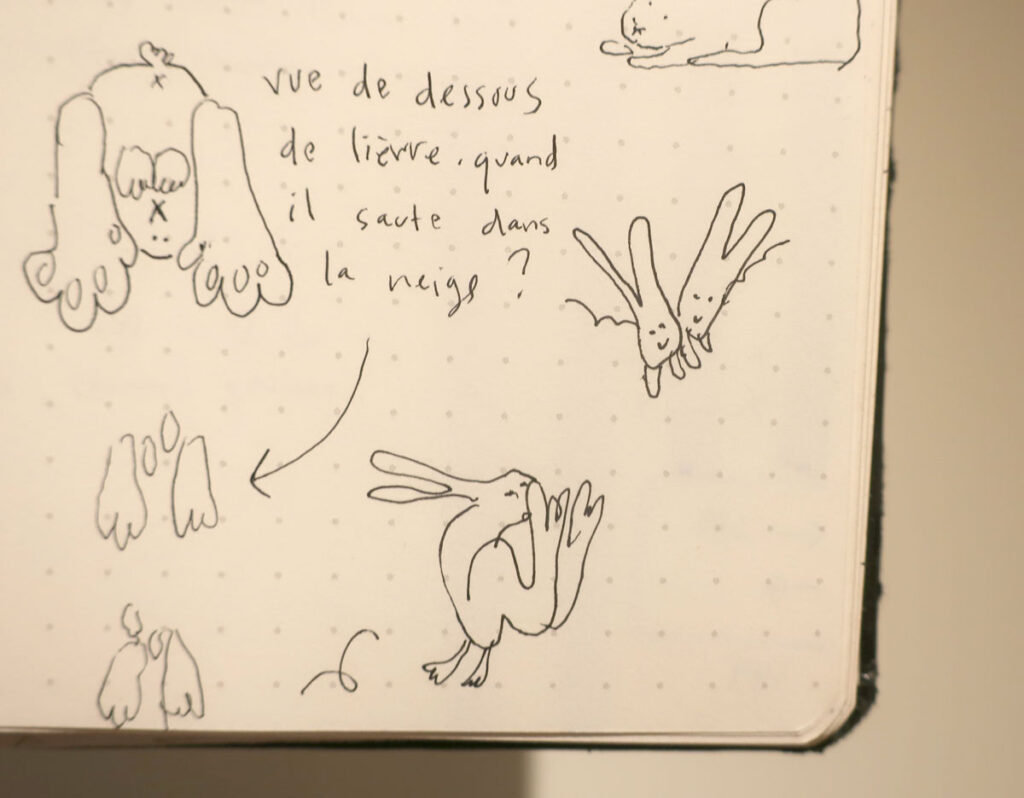 vue de dessous
de lièvre. quand
il saute dans
la neige ?